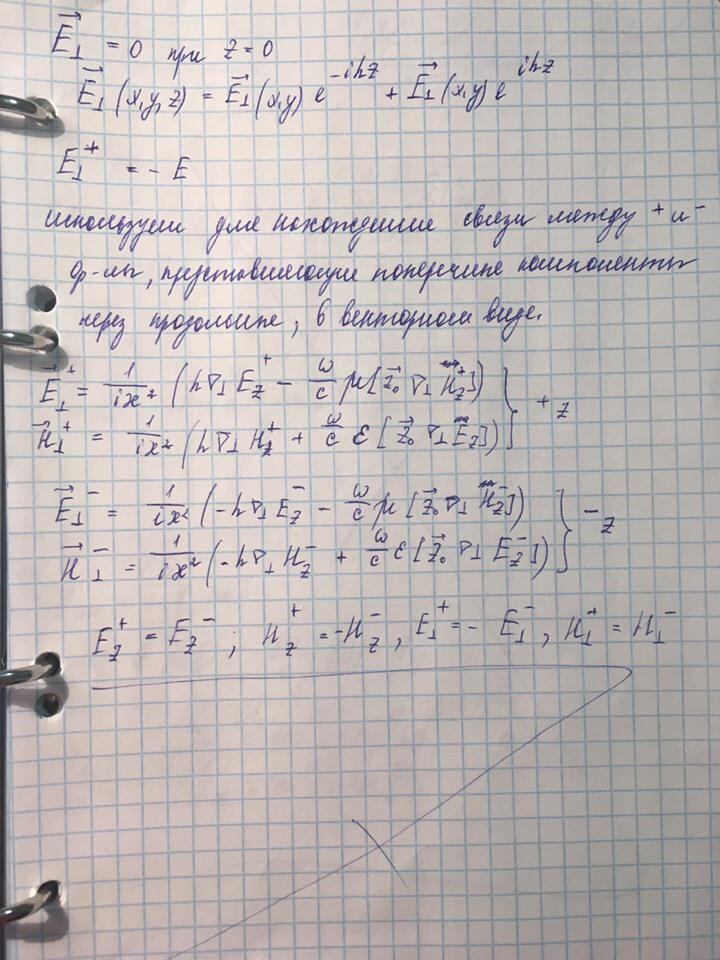 E⃗⊥ = 0 при z = 0
E⃗⊥(x,y,z) = E⃗⊥(x,y) e^{-ihz} + E⃗⊥(x,y) e^{ihz}
E⊥⁺ = - E
используем для нахождение связи между + и -
ф-лы, представляющие поперечные компоненты
через продольные, в векторном виде.
E⃗⊥⁺ = 1/(iæ²) (h∇⊥E_z⁺ - ω/c μ[z⃗₀ ∇⊥ H_z⁺]) } + z
H⃗⊥⁺ = 1/(iæ²) (h∇⊥H_z⁺ + ω/c ε[z⃗₀ ∇⊥ E_z])
E⃗⊥⁻ = 1/(iæ²) (-h∇⊥E_z⁻ - ω/c μ[z⃗₀ ∇⊥ H_z⁻]) } - z
H⃗⊥⁻ = 1/(iæ²) (-h∇⊥H_z⁻ + ω/c ε[z⃗₀ ∇⊥ E_z⁻])
E_z⁺ = E_z⁻ ; H_z⁺ = -H_z⁻, E⊥⁺ = - E⊥⁻, H⊥⁺ = H⊥⁻